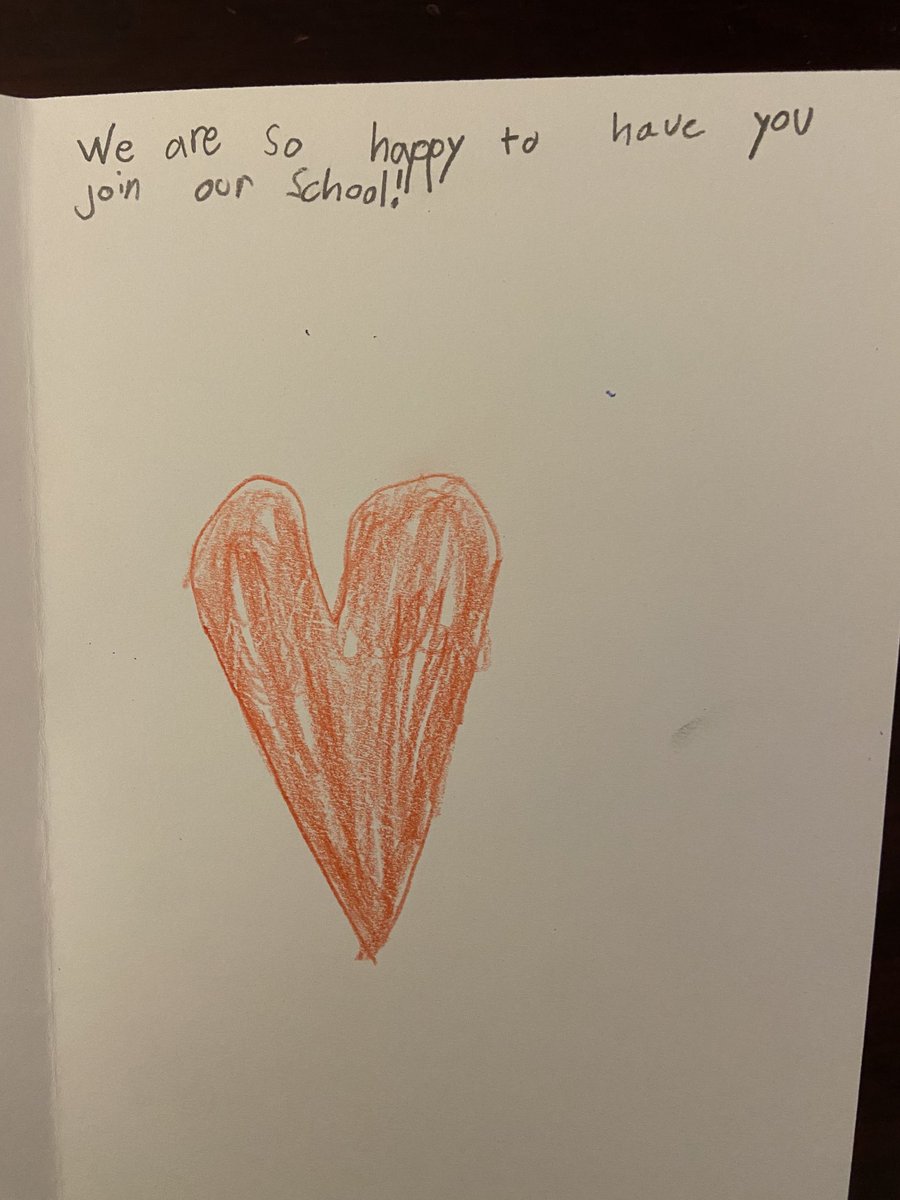 We are so happy to have you
join our School!!